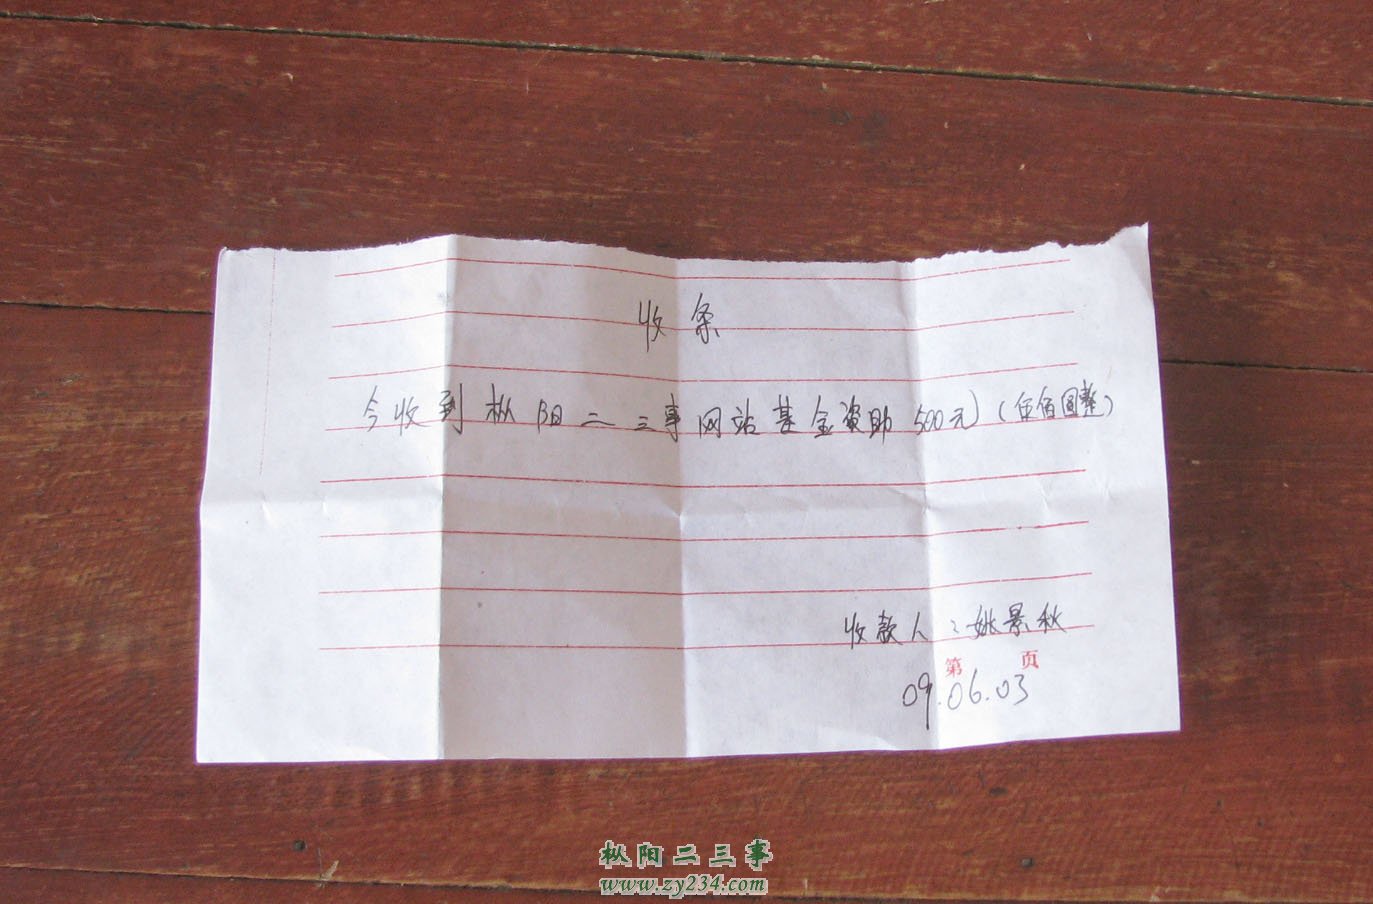 收条
今收到枞阳二三事网站基金资助500元(伍佰圆整)
收款人:姚景秋
第 页
09.06.03
枞阳二三事
www.zy234.com